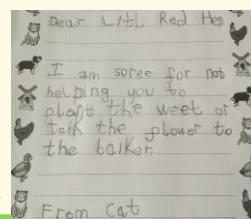 Dear Littl Red Hen
I am soree for not
helping you to
plant the weet or
talk the flower to
the balker.
From Cat